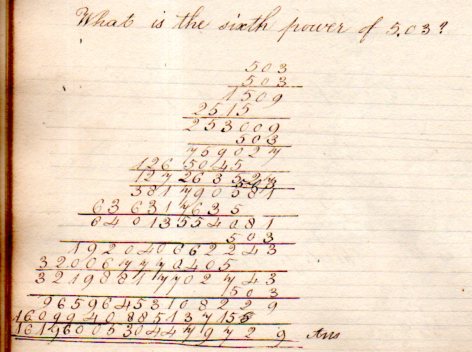 What is the sixth power of 5.03?
503
503
1509
2515
253009
503
759027
1265045
127263527
503
381790581
636317635
64013554081
503
192040662243
320067770405
32198817702743
503
96596453108229
160994088513715
16196005304479729 Ans